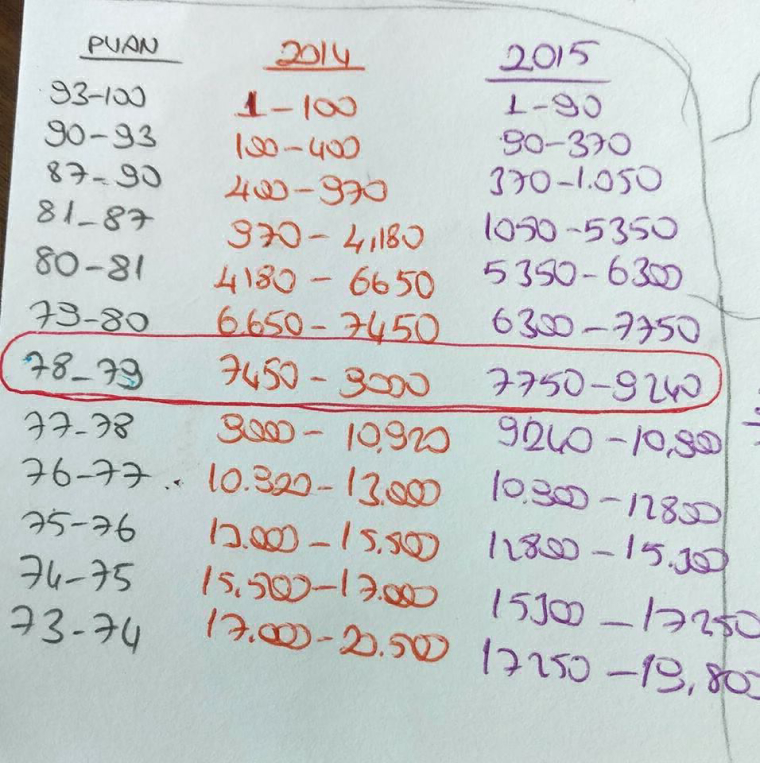 PUAN 2014 2015
93-100 1-100 1-90
90-93 100-400 90-370
87-90 400-970 370-1.050
81-87 970-4,180 1050-5350
80-81 4180-6650 5350-6300
79-80 6.650-7450 6300-7750
78-79 7450-9000 7750-9240
77-78 9000-10,920 9240-10,900
76-77 10.920-13.000 10.900-12800
75-76 13.000-15.500 12800-15.300
74-75 15.500-17.000 15300-17250
73-74 17.000-20.500 17250-19,800